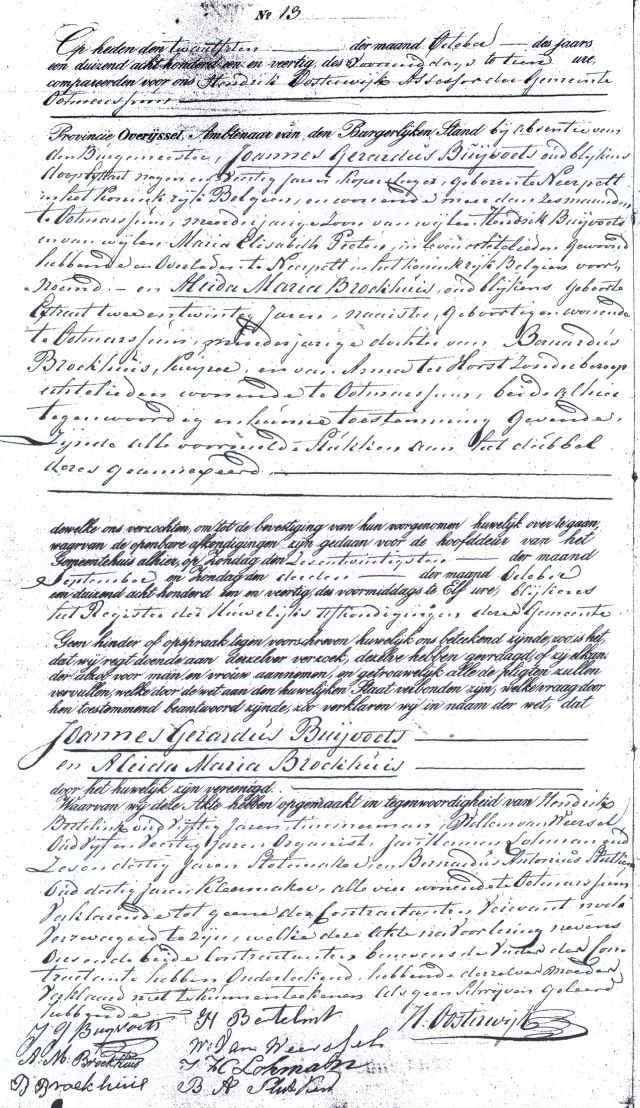 No 13
Op heden den twaalfden der maand October des jaars
een duizend acht honderd een en veertig, des voormiddags te tien ure,
compareerden voor ons Hendrik Oosterwijk Assessor der Gemeente
Ootmarssum
Provincie Overijssel, Ambtenaar van den Burgerlijken Stand bij absentie van
den Burgemeester, Joannes Gerardus Buijvoets oud blijkens
doopcedul negen en veertig jaren, koperslager, geboren te Neerpelt
in het koninkrijk Belgien, en wonende meer dan zes maanden
te Ootmarssum, meerderjarige zoon van wijlen Hendrik Buijvoets
en van wijlen Maria Elisabeth in leven echtelieden gewoond
hebbende en overleden te Neerpelt in het koninkrijk Belgien voor-
noemd – en Aleida Maria Brockhuis, oud blijkens geboorte
Extract twee en twintig jaren, naaister, geboortig en wonende
te Ootmarssum, minderjarige dochter van Bernardus
Brockhuis, en van Anna ter Horst zonder beroep
echtelieden wonende te Ootmarssum, beide alhier
tegenwoordig en hunne toestemming gevende,
zijnde alle voormelde stukken aan het dubbel
dezes geannexeerd
dewelke ons verzochten, om tot de bevestiging van hun voorgenomen huwelijk over te gaan,
waarvan de openbare afkondigingen zijn gedaan voor de hoofddeur van het
Gemeentehuis alhier, op Zondag den Zesentwintigsten der maand
September en Zondag den derden der maand October
een duizend acht honderd een en veertig, des voormiddags te Elf ure, blijkens
het Register der Huwelijks afkondigingen dezer Gemeente
Geen hinder of opspraak tegen voorschreven huwelijk ons beteekend zijnde, zoo is het,
dat wij regt doende aan derzelver verzoek, dezelve hebben gevraagd, of zij elkan-
der alzoo voor man en vrouw aannemen, en getrouwelijk alle de pligten zullen
vervullen, welke door de wet aan den huwelijken Staat verbonden zijn, welke vraag door
hen toestemmend beantwoord zijnde, zoo verklaren wij in naam der wet, dat
Joannes Gerardus Buijvoets
en Aleida Maria Brockhuis
door het huwelijk zijn vereenigd.
Waarvan wij deze Akte hebben opgemaakt in tegenwoordigheid van Hendrik
oud vijftig jaren timmerman, Willem van Weersel
oud vijf en veertig jaren Organist, Jan Herman Lohman oud
zes en dertig jaren en Bernardus Antonius
oud dertig jaren kleermaker, alle vier wonende te Ootmarssum
verklarende tot geene der Contractanten verwant noch
verzwagerd te zijn, welke deze Akte na voorlezing nevens
ons en de beide contractanten benevens de Vader der Con-
tractante hebben Onderteekend, hebbende derzelver moeder
verklaard niet te kunnen teekenen als geen schrijven geleerd
hebbende
J G Buijvoets
A. M. Brockhuis
B Broekhuis
H
W. van Weersel
J H Lohman
B A
H. Oosterwijk